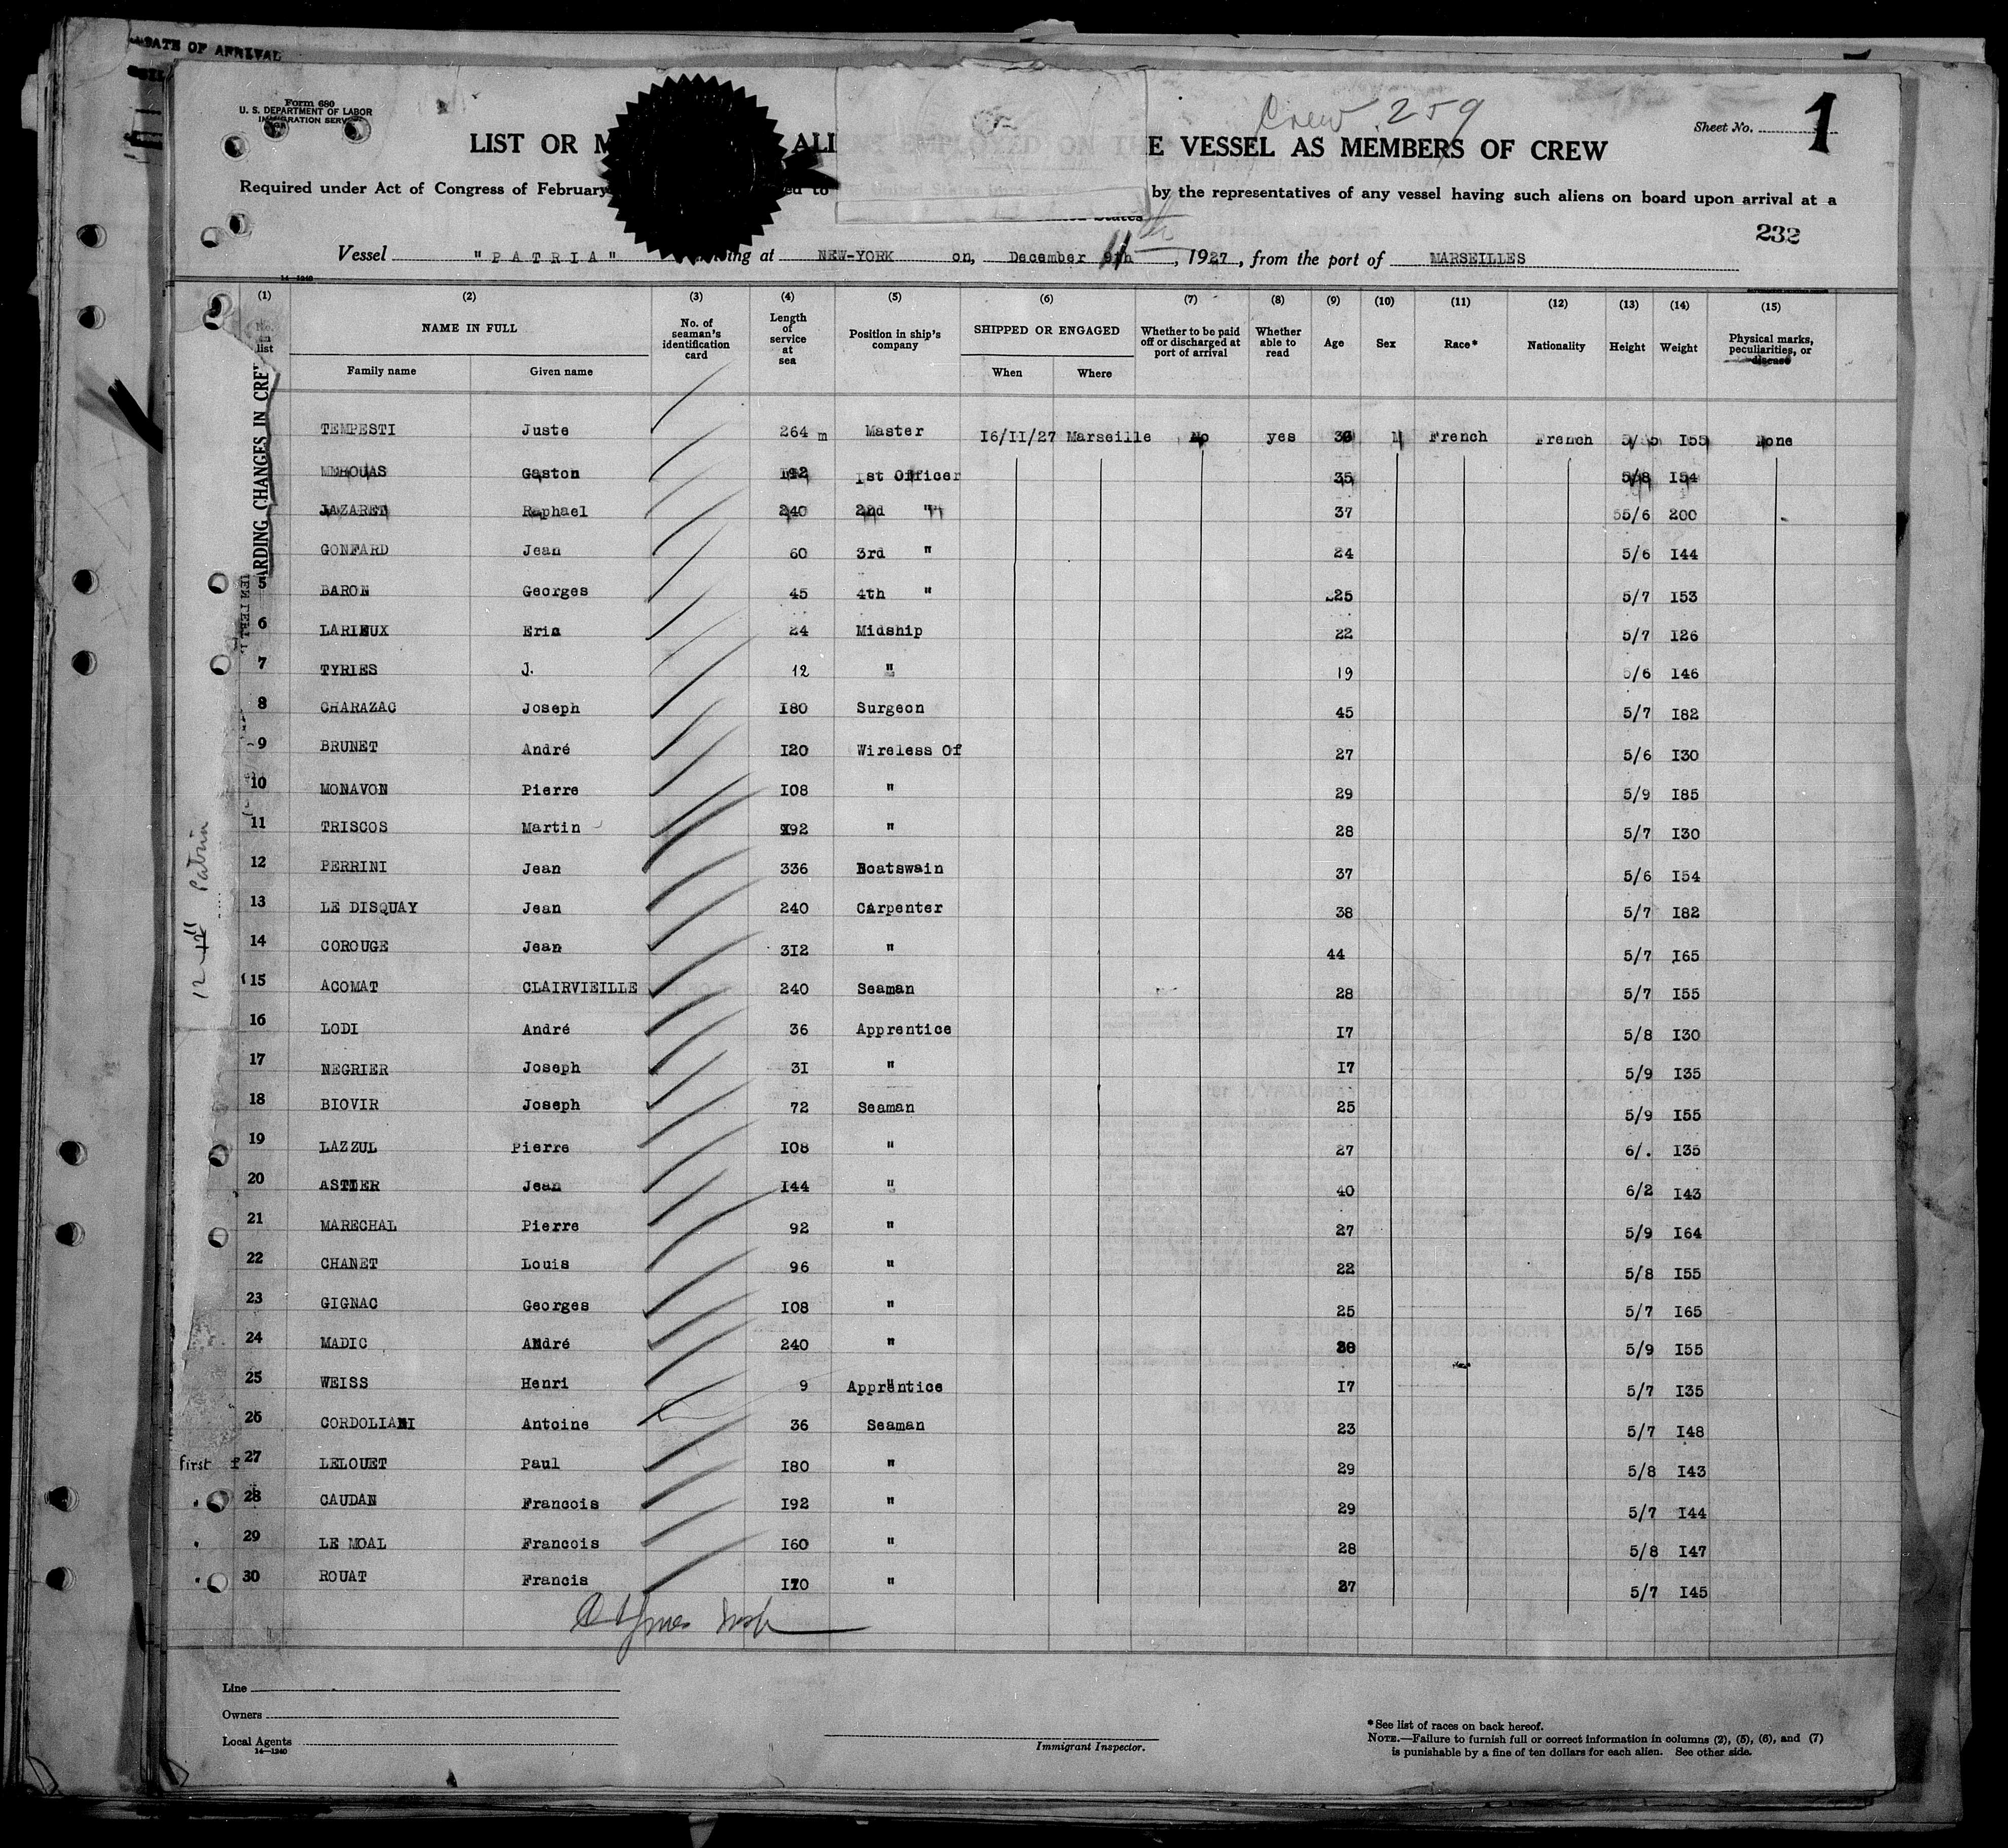 DATE OF ARRIVAL
Form 680
U. S. DEPARTMENT OF LABOR
IMMIGRATION SERVICE
Crew 259
Sheet No. 1
LIST OR M ALI E VESSEL AS MEMBERS OF CREW
Required under Act of Congress of February ed to by the representatives of any vessel having such aliens on board upon arrival at a
232
Vessel "PATRIA" ing at NEW-YORK on, December 11th, 1927, from the port of MARSEILLES
14-1240
(1) (2) (3) (4) (5) (6) (7) (8) (9) (10) (11) (12) (13) (14) (15)
No. on list NAME IN FULL Family name Given name No. of seaman's identification card Length of service at sea Position in ship's company SHIPPED OR ENGAGED When Where Whether to be paid off or discharged at port of arrival Whether able to read Age Sex Race* Nationality Height Weight Physical marks, peculiarities, or disease
ARDING CHANGES IN CRE
TEMPESTI Juste 264 m Master 16/11/27 Marseille No yes French French 155 None
Gaston 1st Officer 35 5/8 154
JAZARET Raphael 240 2nd " 37 55/6 200
GONFARD Jean 60 3rd " 24 5/6 144
5 BARON Georges 45 4th " 25 5/7 153
6 LARIEUX Eric 24 Midship 22 5/7 126
7 TYRIES J. 12 " 19 5/6 146
8 CHARAZAC Joseph 180 Surgeon 45 5/7 182
9 BRUNET André 120 Wireless Of 27 5/6 130
10 MONAVON Pierre 108 " 29 5/9 185
11 TRISCOS Martin 192 " 28 5/7 130
12 PERRINI Jean 336 Boatswain 37 5/6 154
13 LE DISQUAY Jean 240 Carpenter 38 5/7 182
14 COROUGE Jean 312 " 44 5/7 165
15 ACOMAT CLAIRVIEILLE 240 Seaman 28 5/7 155
16 LODI André 36 Apprentice 17 5/8 130
17 NEGRIER Joseph 31 " 17 5/9 135
18 BIOVIR Joseph 72 Seaman 25 5/9 155
19 LAZZUL Pierre 108 " 27 6/. 135
20 ASTIER Jean 144 " 40 6/2 143
21 MARECHAL Pierre 92 " 27 5/9 164
22 CHANET Louis 96 " 22 5/8 155
23 GIGNAC Georges 108 " 25 5/7 165
24 MADIC André 240 " 5/9 155
25 WEISS Henri 9 Apprentice 17 5/7 135
26 CORDOLIANI Antoine 36 Seaman 23 5/7 148
27 LELOUET Paul 180 " 29 5/8 143
28 CAUDAN Francois 192 " 29 5/7 144
29 LE MOAL Francois 160 " 28 5/8 147
30 ROUAT Francis 170 " 27 5/7 145
first
12 Patria
Line
Owners
Local Agents
14-1240
Immigrant Inspector.
*See list of races on back hereof.
NOTE.—Failure to furnish full or correct information in columns (2), (5), (6), and (7)
is punishable by a fine of ten dollars for each alien. See other side.